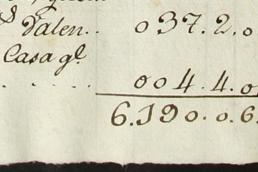 Valen.. 037.2.0
Casa gl.
. . . . . 004.4.0
6.190.0.6